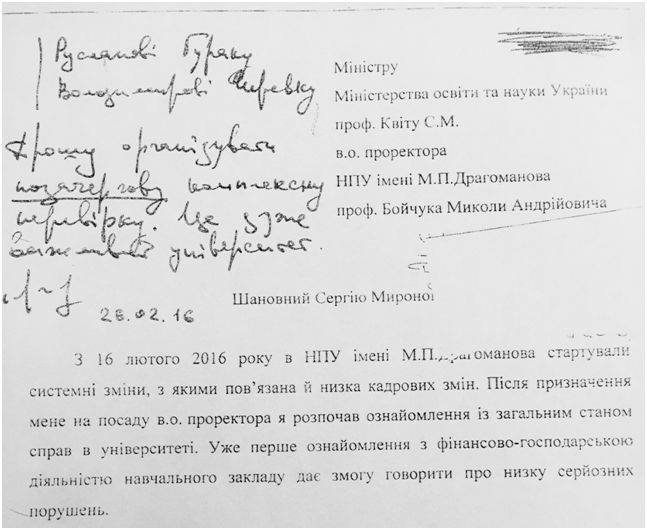 Русланові Гураку
Володимирові Чиревку
Прошу організувати
позачергову комплексну
перевірку. Це дуже
важливий університет.
26.02.16
Міністру
Міністерства освіти та науки України
проф. Квіту С.М.
в.о. проректора
НПУ імені М.П.Драгоманова
проф. Бойчука Миколи Андрійовича
Шановний Сергію
З 16 лютого 2016 року в НПУ імені М.П.Драгоманова стартували
системні зміни, з якими пов'язана й низка кадрових змін. Після призначення
мене на посаду в.о. проректора я розпочав ознайомлення із загальним станом
справ в університеті. Уже перше ознайомлення з фінансово-господарською
діяльністю навчального закладу дає змогу говорити про низку серйозних
порушень.